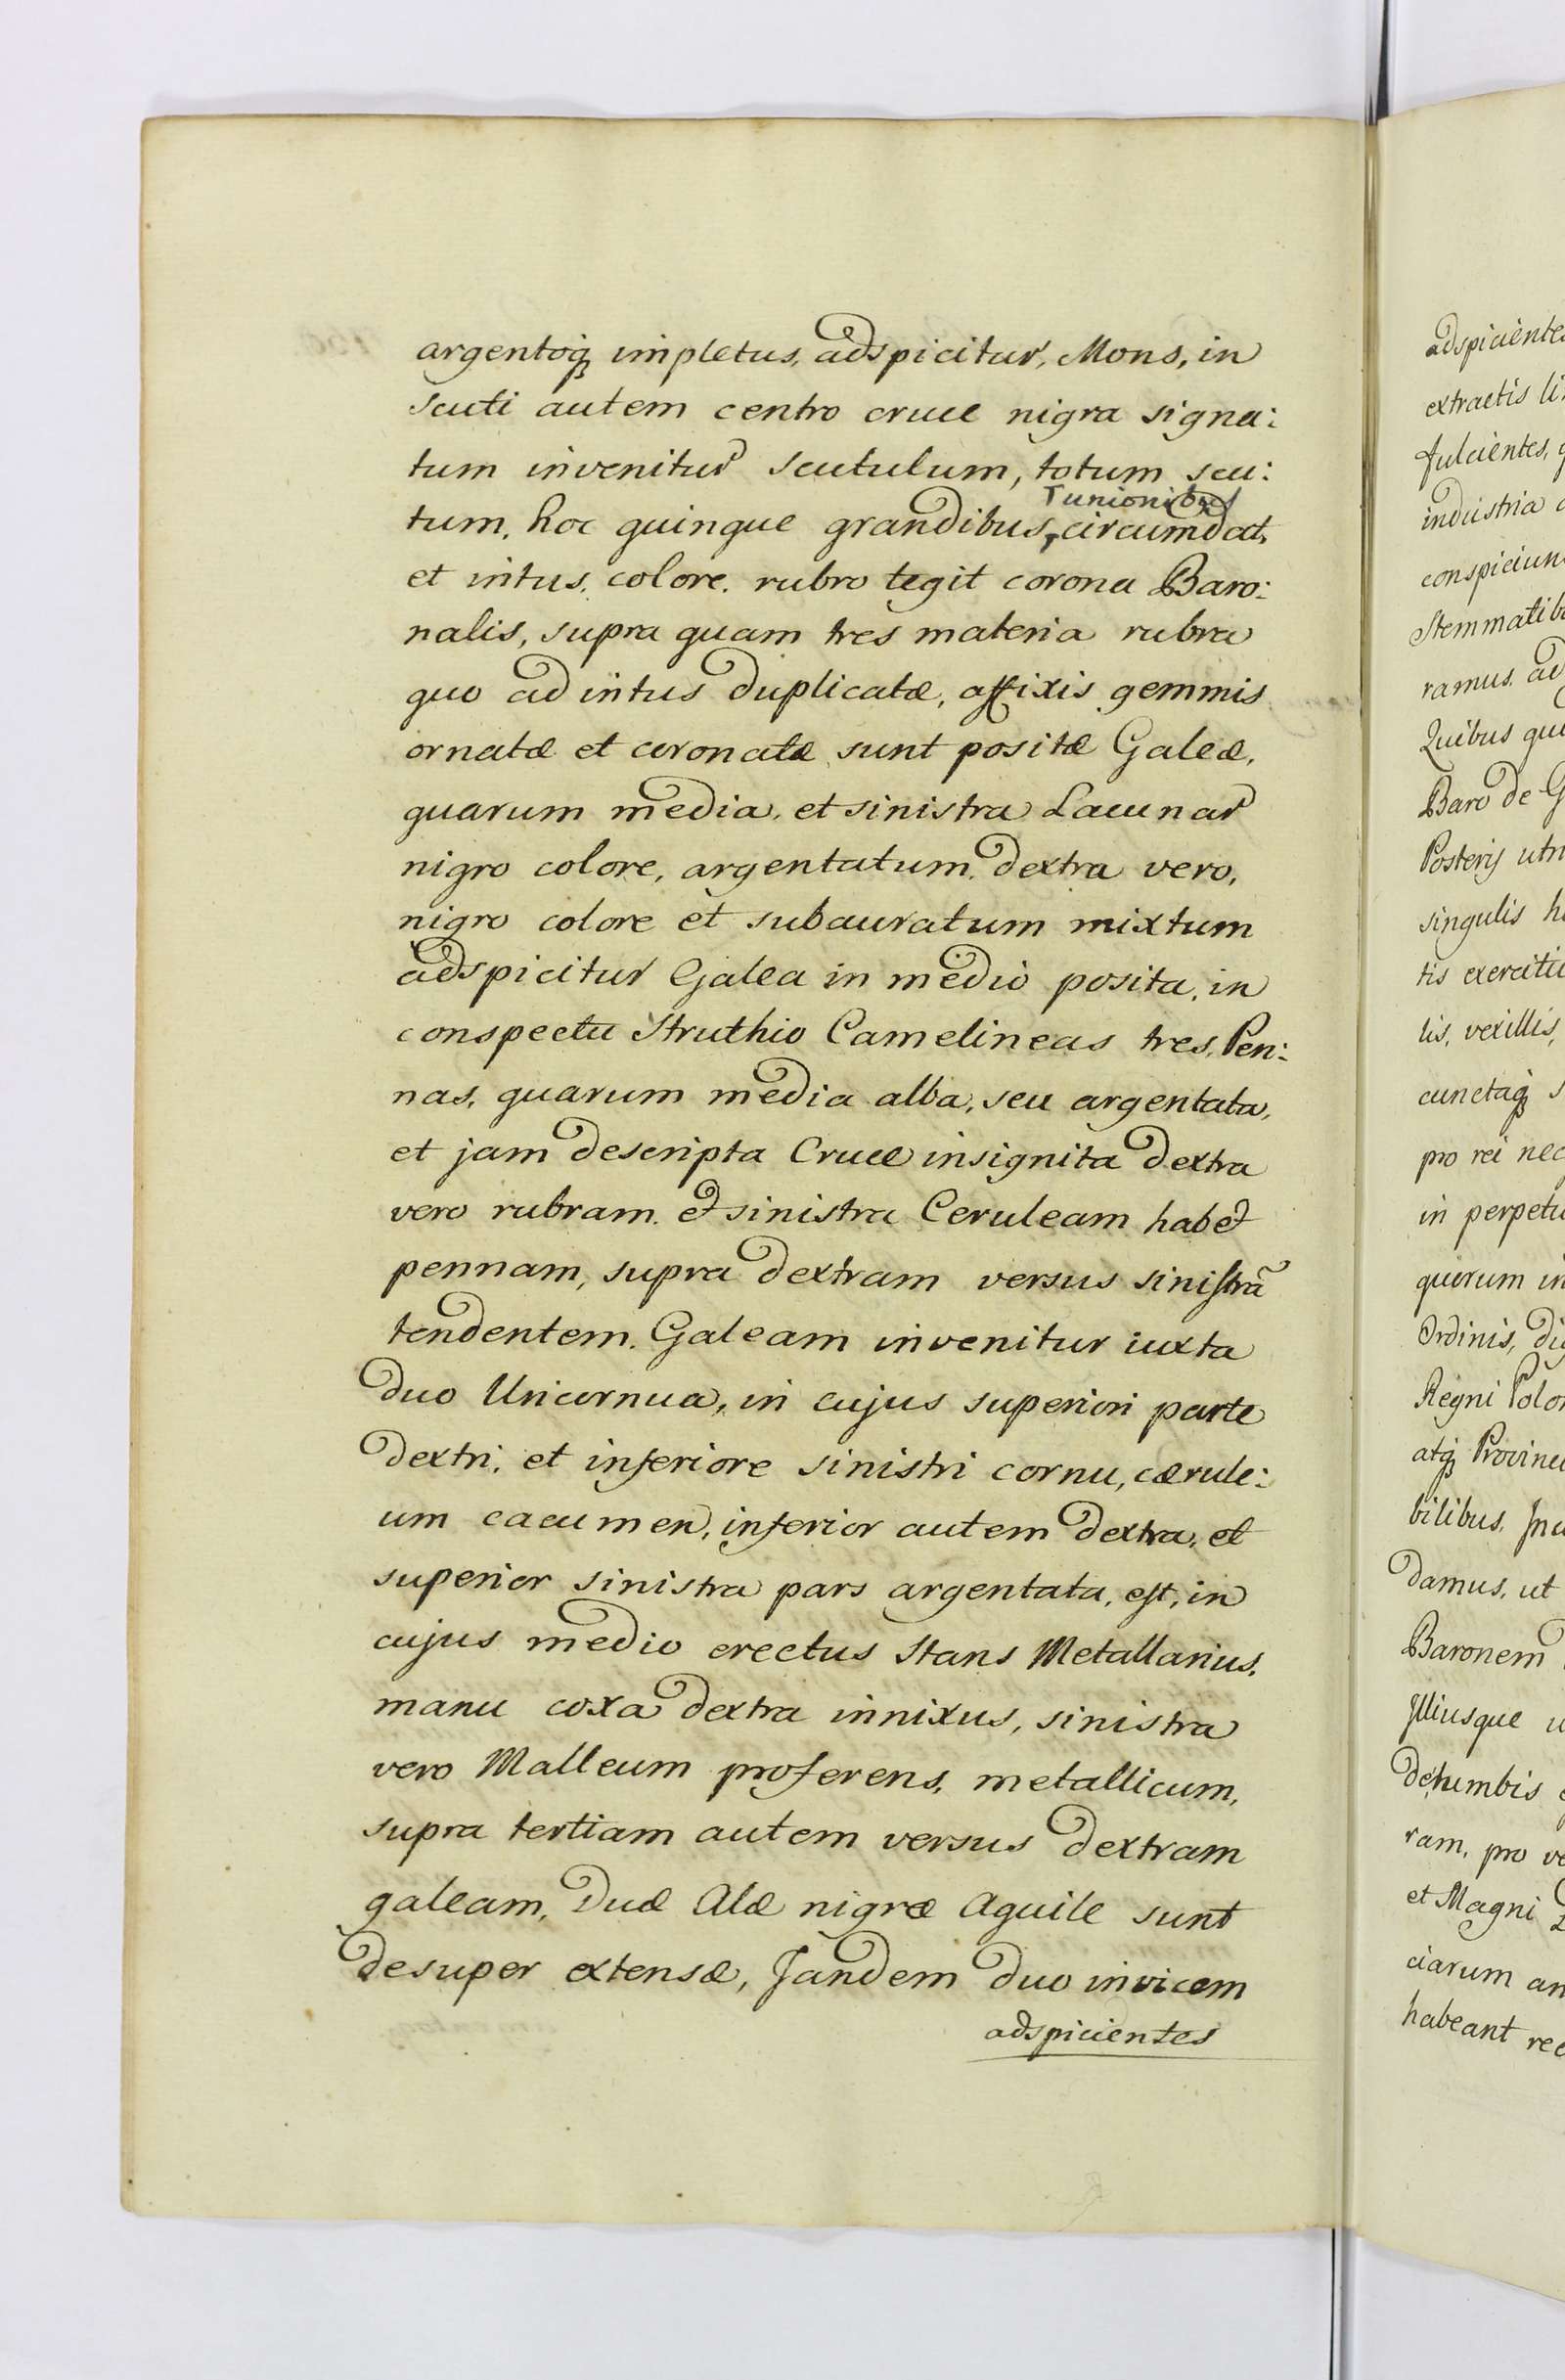 argentoq impletus, adspicitur, Mons, in
scuti autem centro cruce nigra signa:
tum invenitur scutulum, totum scu:
Tunionibus
tum, hoc quinque grandibus, circumdat,
et intus, colore. rubro tegit corona Baro:
nalis, supra quam tres materia rubra
quo ad intus duplicatæ, affixis gemmis
ornatæ et coronatæ sunt positæ Galeæ,
quarum media, et sinistra Lacunar
nigro colore, argentatum. dextra vero,
nigro colore et subauratum mixtum
adspicitur Galea in medio posita, in
conspectu Struthio Camelineas tres, Pen:
nas, quarum media alba, seu argentata,
et jam descripta Cruce insignita dextra
vero rubram. et sinistra Ceruleam habet
pennam, supra dextram versus sinistrã
tendentem. Galeam invenitur iuxta
duo Unicornua, in cujus superiori parte
dextri, et inferiore sinistri cornu, cærule:
um cacumen, inferior autem dextra, et
superior sinistra pars argentata, est, in
cujus medio erectus stans Metallarius,
manu coxa dextra innixus, sinistra
vero Malleum proferens, metallicum,
supra tertiam autem versus dextram
galeam, Duæ Alæ nigræ Aquile sunt
desuper extensæ, Tandem duo invicem
adspicientes
adspicientes
extractis
fulcientes,
industria
Quibus
Baro de
Posterij
singulis
tis
lis, vexillis,
cunctaq
pro rei
in
quorum
Ordinis,
Regni
atq
bilibus,
damus, ut
Baronem
Illiusque
ram, pro
et Magni
ciarum
habeant